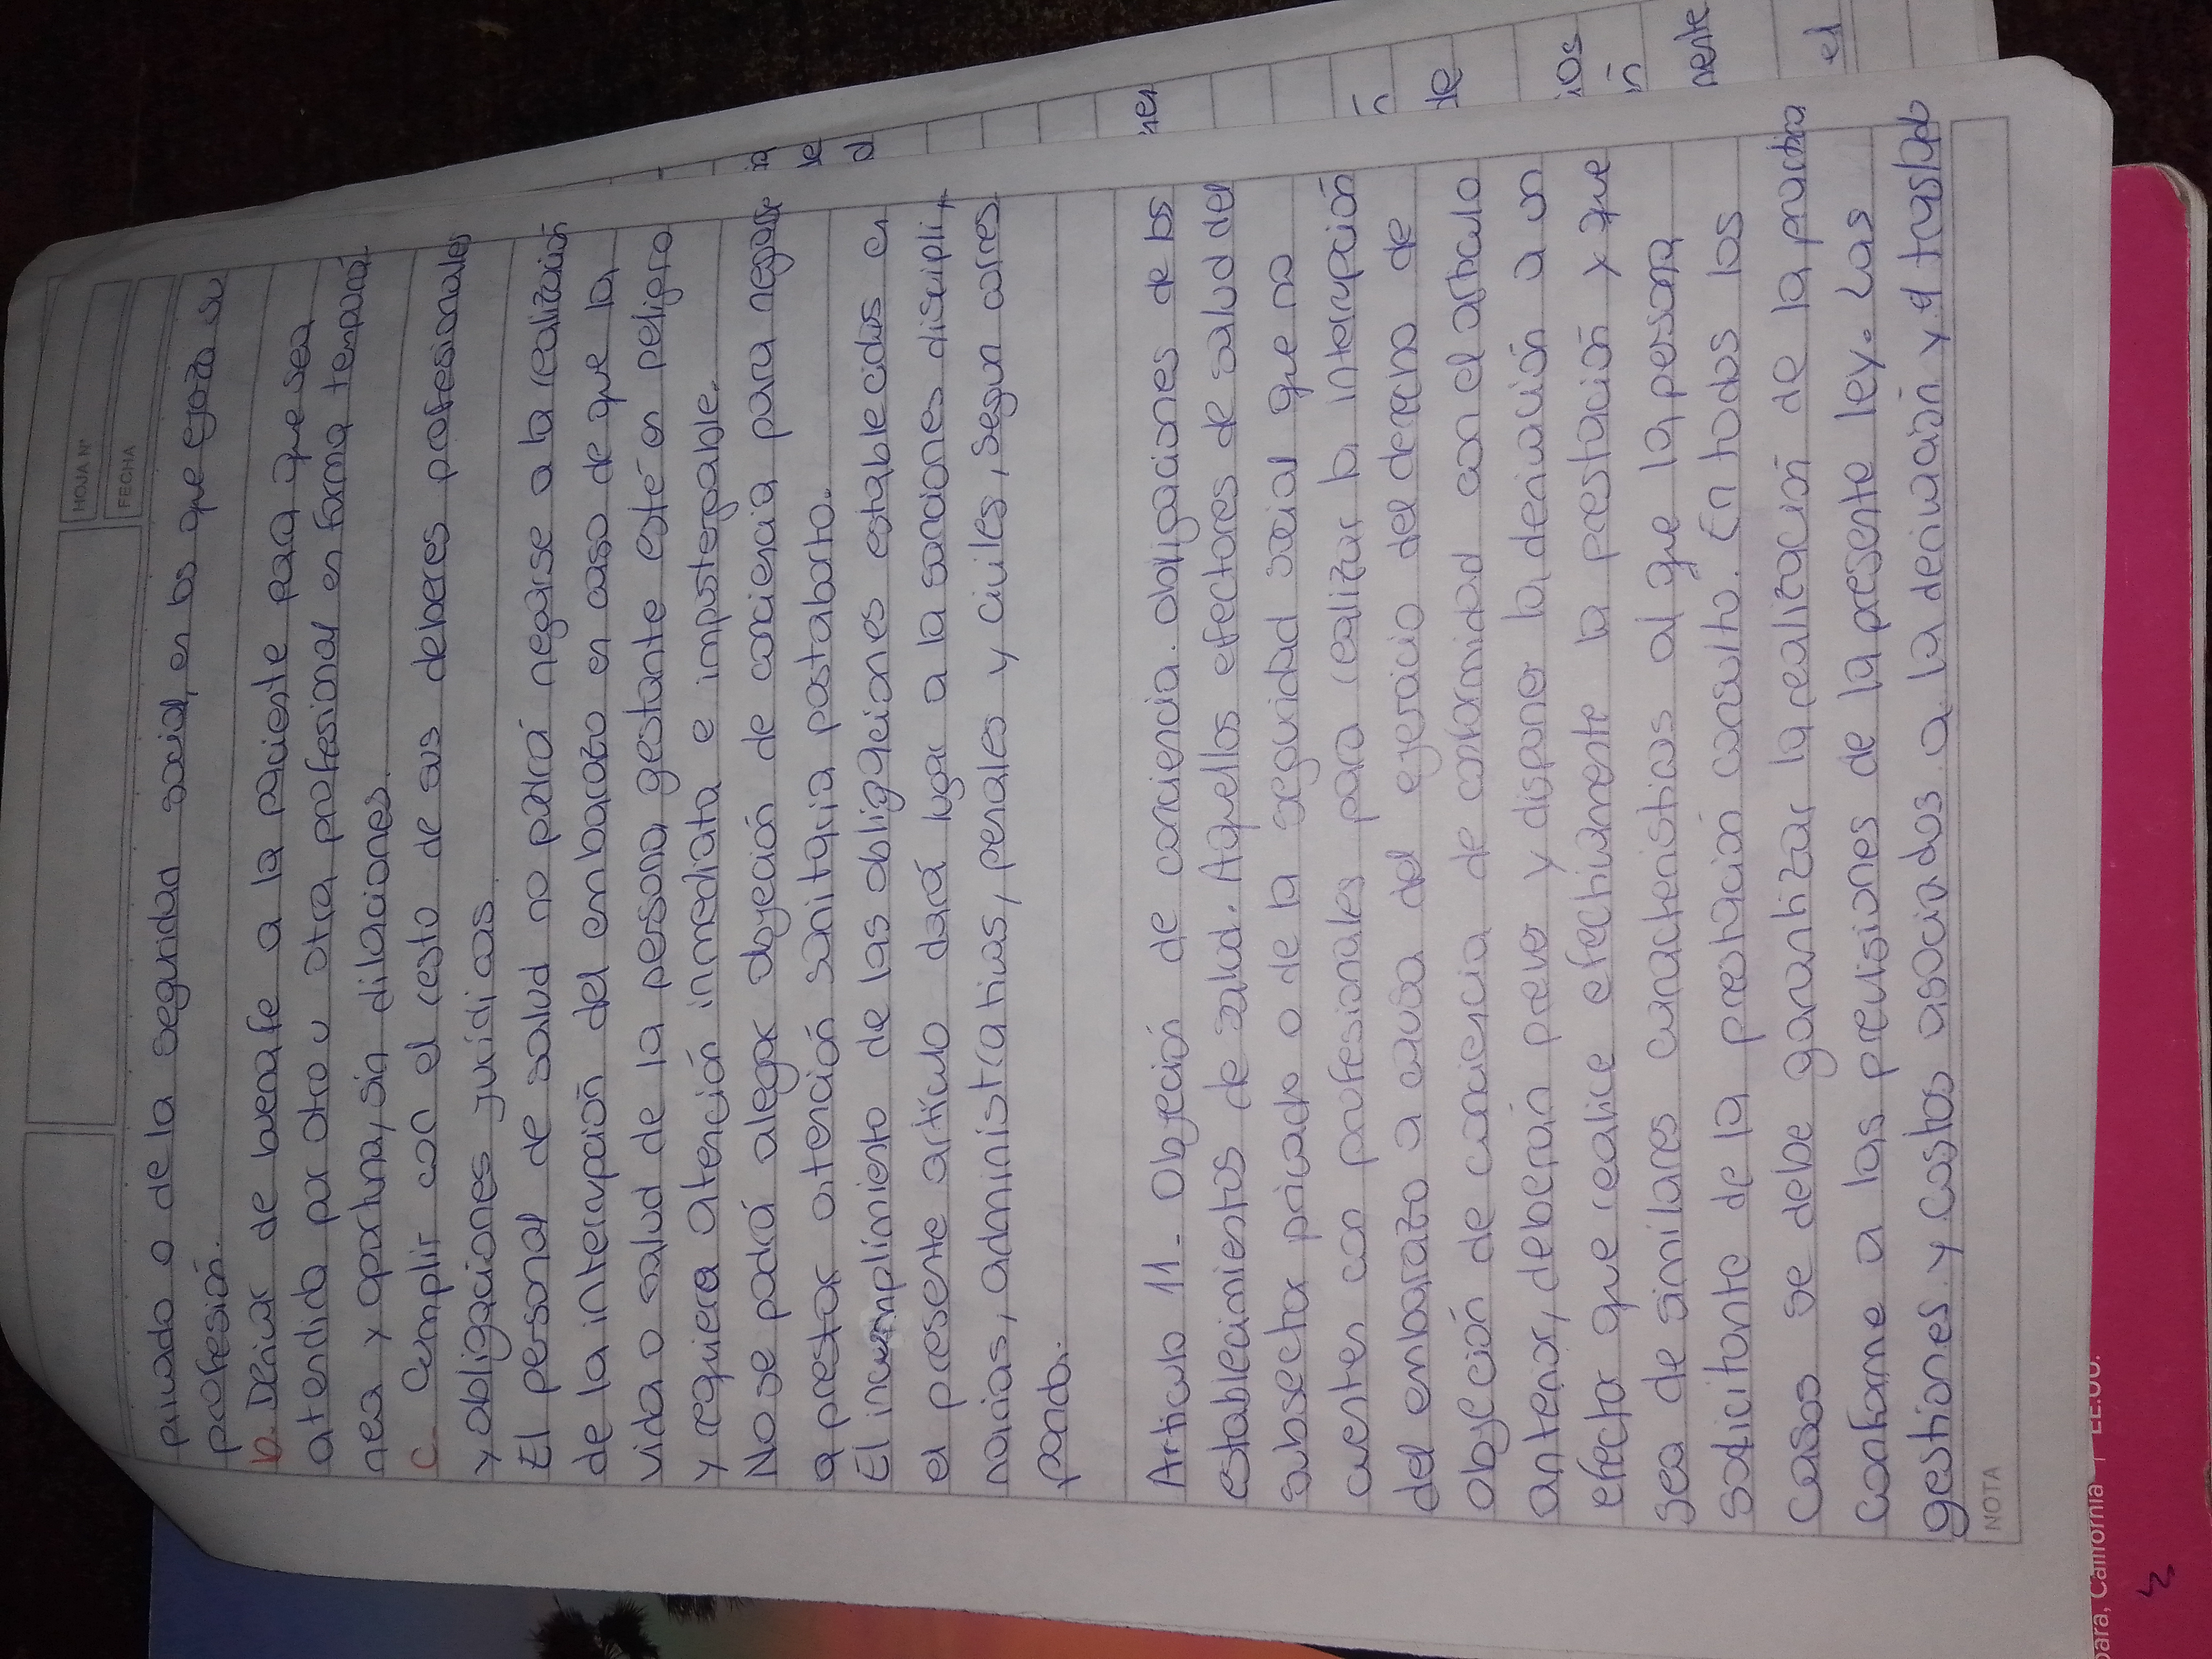 HOJA N°
FECHA
privado o de la seguridad social, en los que ejerza su
profesión.
b. Derivar de buena fe a la paciente para que sea
atendida por otro u otra profesional en forma temporá
nea y oportuna, sin dilaciones.
c. Cumplir con el resto de sus deberes profesionales
y obligaciones jurídicas.
El personal de salud no podrá negarse a la realización
de la interrupción del embarazo en caso de que la
vida o salud de la persona gestante esté en peligro
y requiera atención inmediata e impostergable.
No se podrá alegar objeción de conciencia para negarse
a prestar atención sanitaria postaborto.
El incumplimiento de las obligaciones establecidas en
el presente artículo dará lugar a la sanciones discipli
narias, administrativas, penales y civiles, segun corres
ponda.
Artículo 11 - Objeción de conciencia. obligaciones de los
establecimientos de salud. Aquellos efectores de salud del
subsector privado o de la seguridad social que no
cuenten con profesionales para realizar la interrupción
del embarazo a causa del ejercicio del derecho de
objeción de conciencia de conformidad con el artículo
anterior, deberán prever y disponer la derivación a un
efector que realice efectivamente la prestación y que
sea de similares características al que la persona
solicitante de la prestación consultó. En todos los
casos se debe garantizar la realización de la práctica
conforme a las previsiones de la presente ley. Las
gestiones y costos asociados a la derivación y el traslado
NOTA
ia
le
al
ner
ón
de
ios
n
nente
el
bara, California | EE.UU.